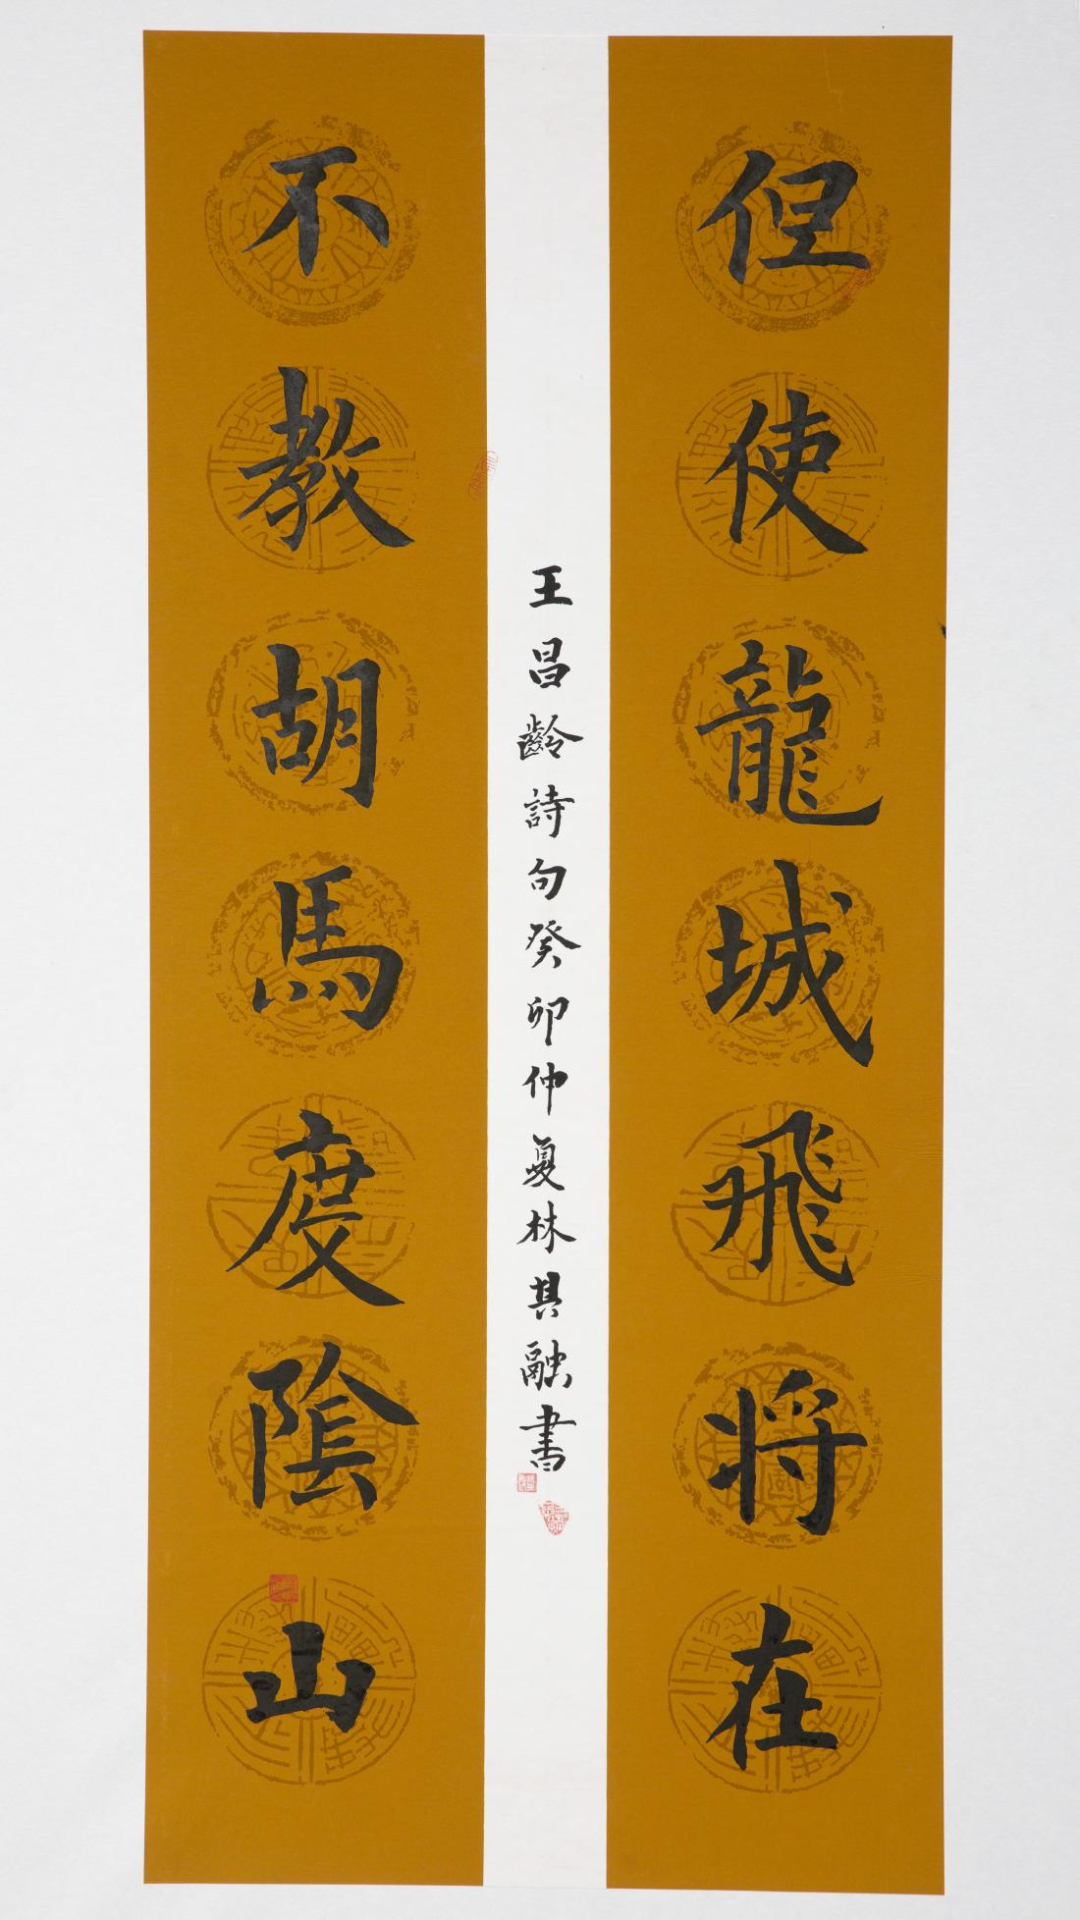 但使龍城飛将在
不教胡馬度隂山
王昌齡詩句癸卯仲夏林其融書